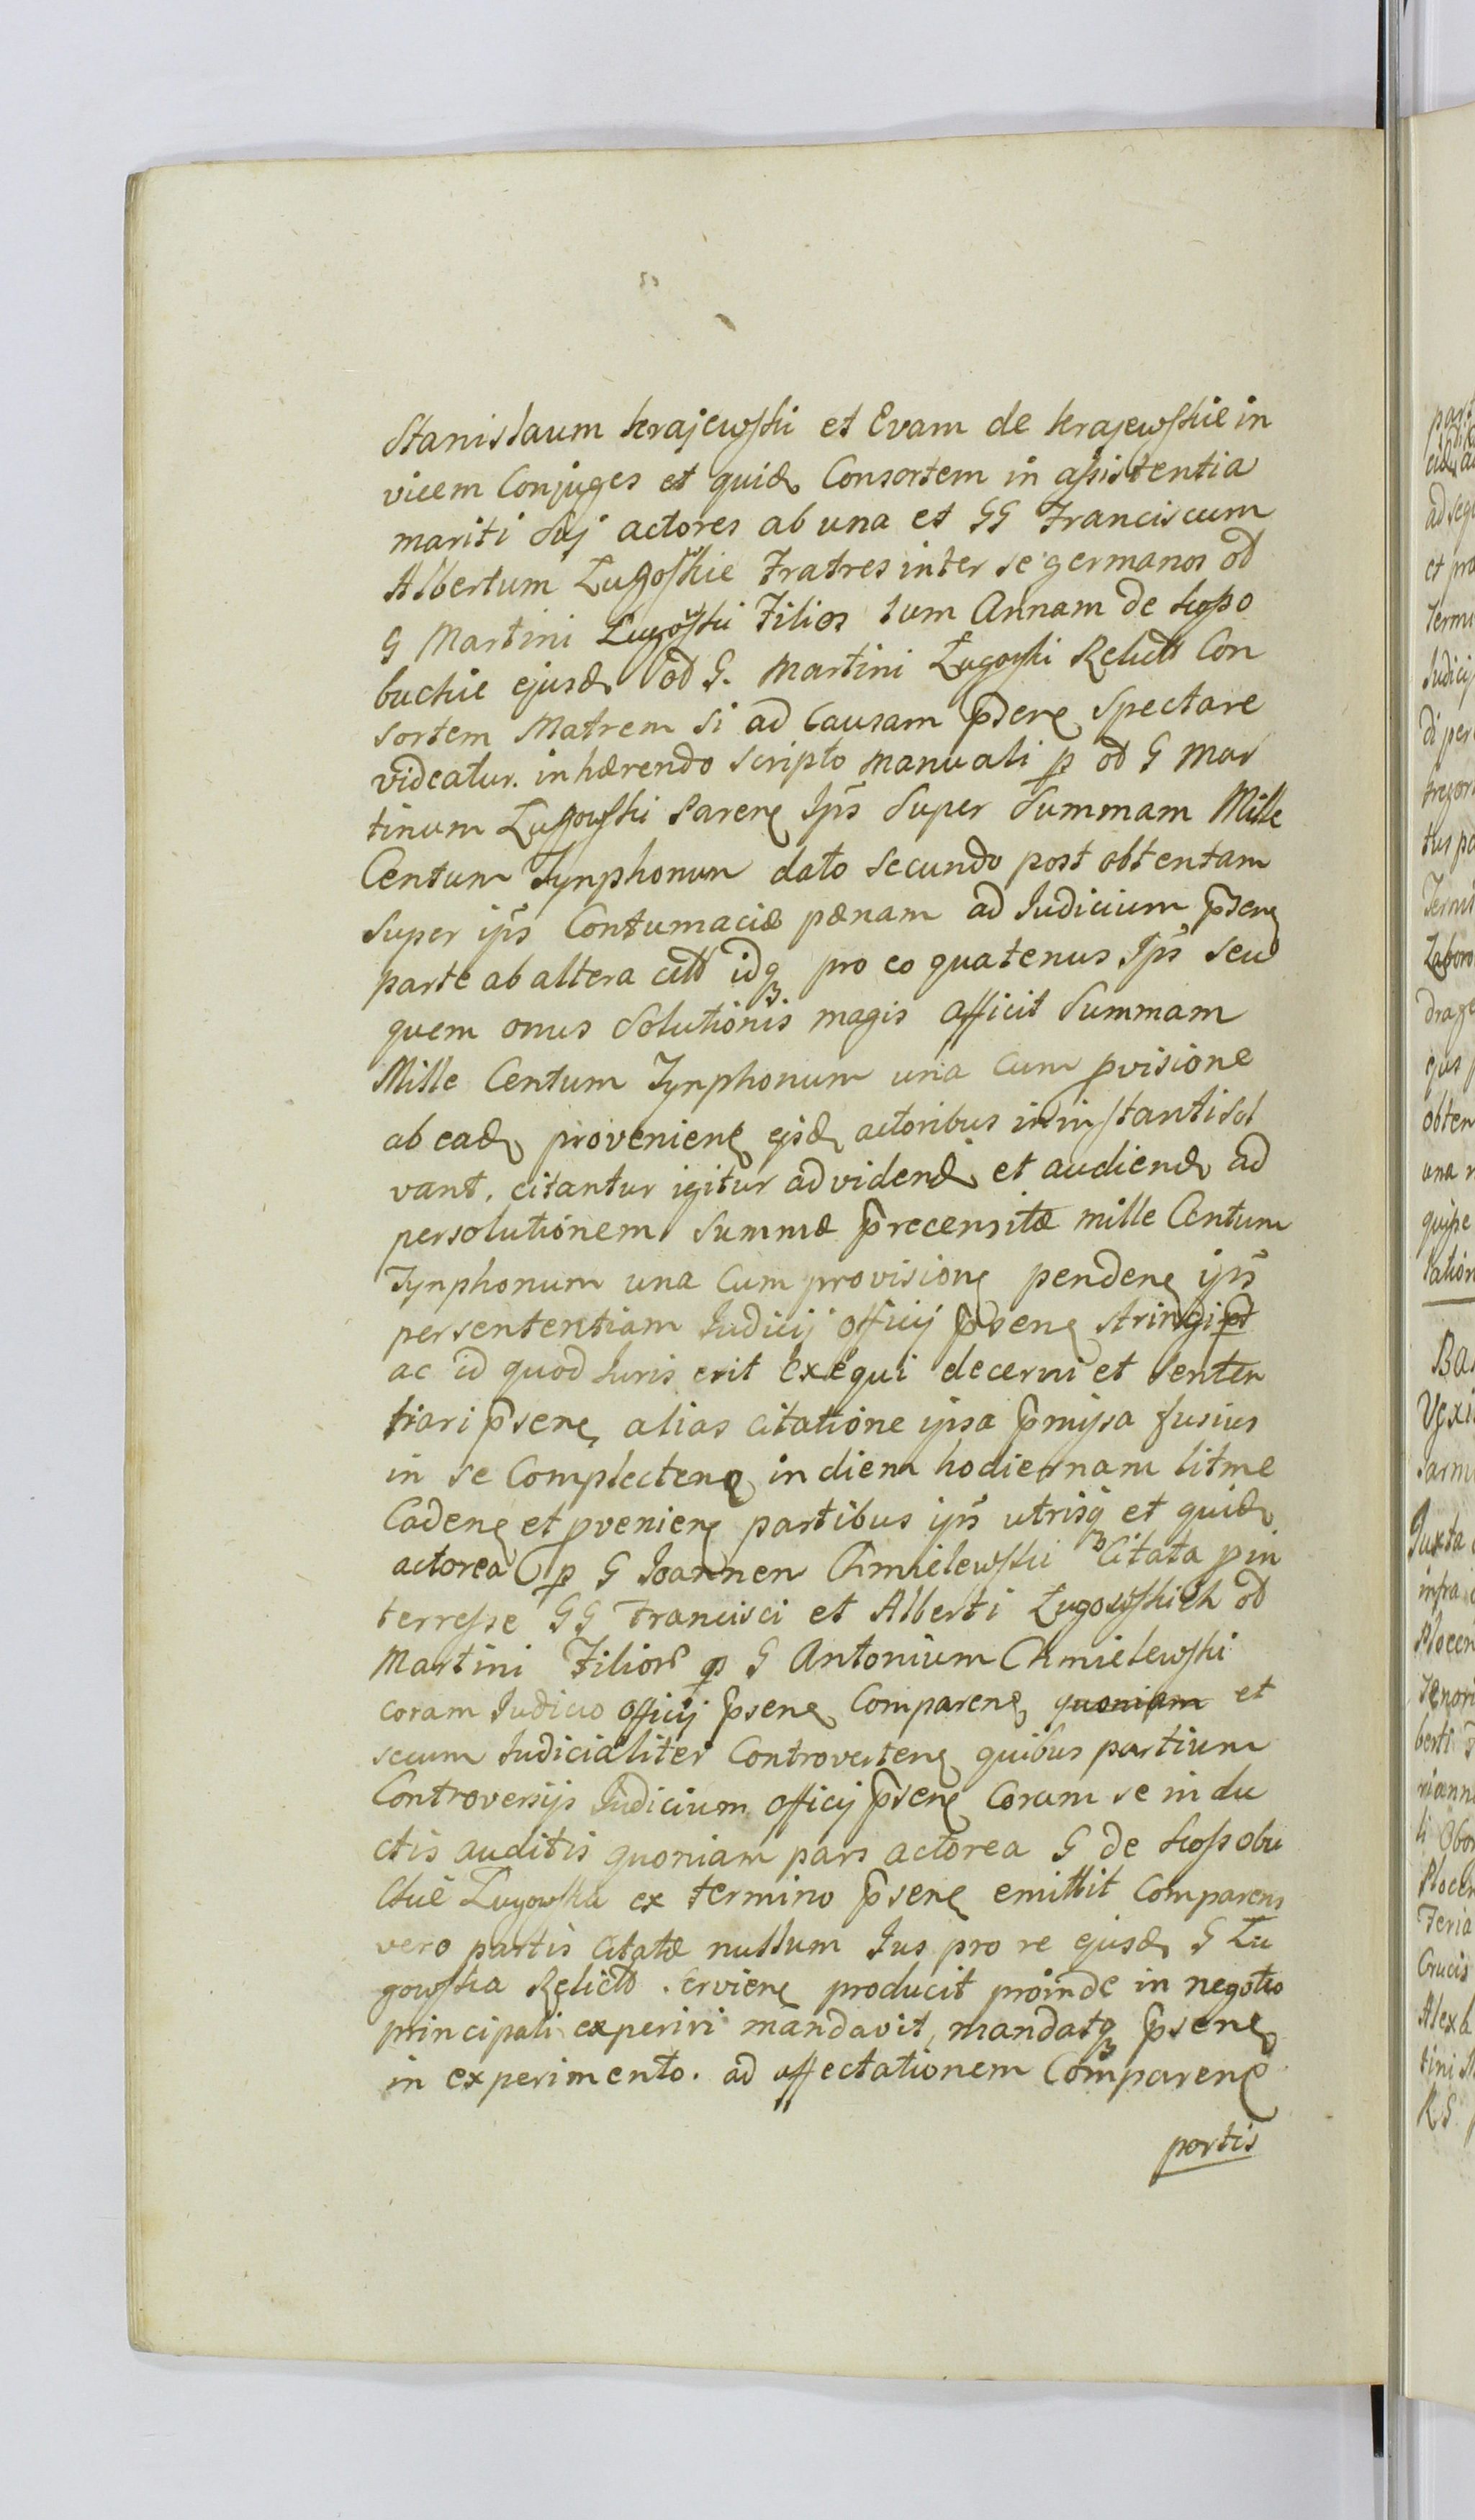 Stanislaum Krajewski et Evam de Krajewskie in
vicem Conjuges et quidē Consortem in assistentia
mariti sui actores ab una et GG Franciscum
Albertum Lugowskie Fratres inter se germanos od
G Martini Lugowski Filios tum Annam de Kosso
buckie ejusdē od G. Martini Lugowski Relict Con
sortem Matrem si ad Causam p̄sene spectare
videatur. inhærendo scripto manuali p od G Mar
tinum Lugowski Parene Ip̄s super Summam Mille
Centum Tynphonum dato secundo post obtentam
super ip̄s Contumaciæ pænam ad Iudicium p̄sene
parte ab altera citt idq pro eo quatenus Ip̄s seu
quem onus solutionis magis afficit Summam
Mille Centum Tynphonum una cum pvisione
ab eadē proveniene ejsdē actoribus in instanti sol
vant. citantur igitur ad videndē et audiendē ad
persolutionem Summæ p̄recensitæ mille Centum
Tynphonum una cum provisione pendene ip̄s
per sententiam Iudicij officij p̄sene stringi
ac id quod Iuris erit exequi decerni et senten
tiari p̄sene alias citatione ipsa p̄missa fusius
in se Complectene in diem hodiernam litme
Cadene et pveniene partibus ip̄s utrisq et quidē
actorea p G Ioannem Chmielewski Citata p in
terresse GG Francisci et Alberti Lugowskich od
Martini Filior p G Antonium Chmielewski
coram Iudicio officij p̄sene Comparene quoniam et
secum Iudicialiter Controvertene quibus partium
Controversijs Iudicium officij p̄sene Coram se in du
ctis auditis quoniam pars actorea G de Kossobu
ckie Lugowska ex termino p̄sene emittit Comparens
vero partis Citatæ nullum Ius pro re ejusdē G Lu
gowska Relict serviene producit proinde in negotio
principali experiri mandavit, mandatq p̄sene
in experimento. ad affectationem Comparene
partis